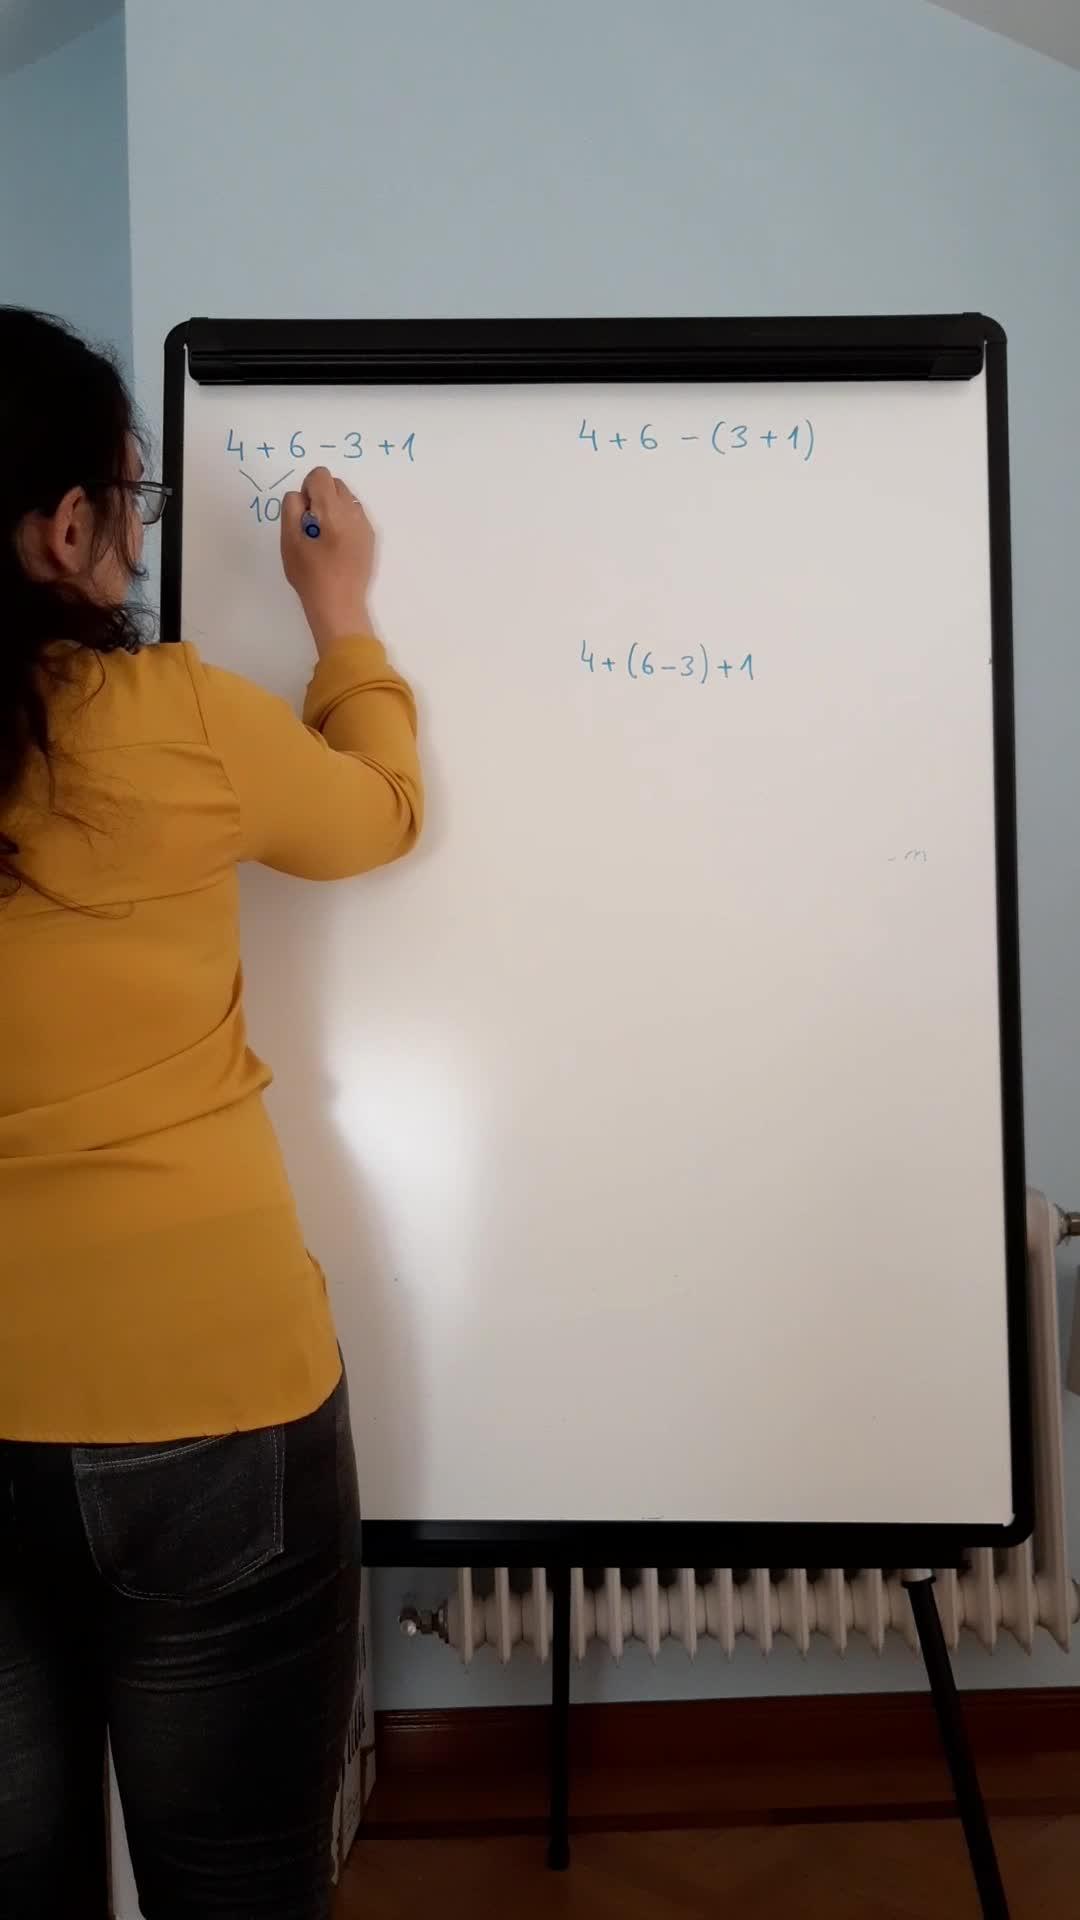 4 + 6 - 3 + 1
10
4 + 6 - (3 + 1)
4 + (6 - 3) + 1